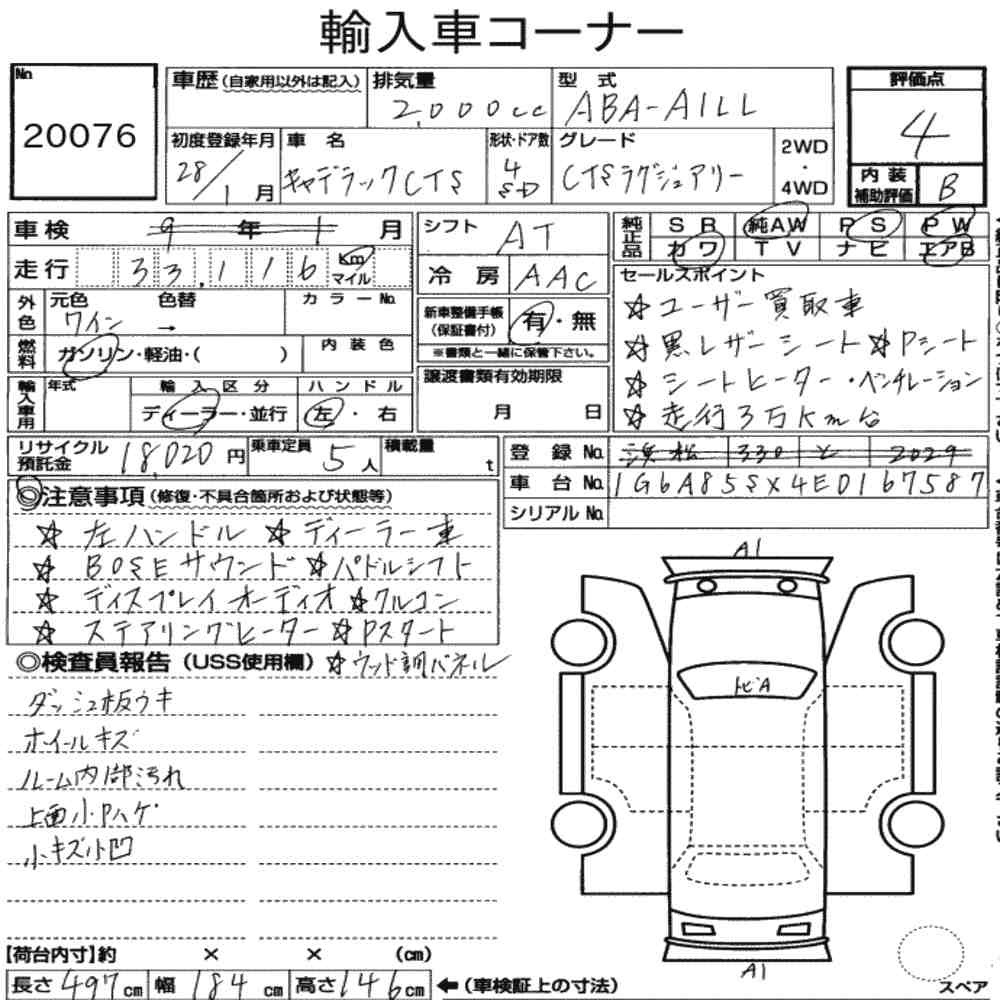 輸入車コーナー
No
20076
車歴(自家用以外は記入)
排気量
2,000cc
型 式
ABA-A1LL
評価点
4
初度登録年月
28/1月
車 名
キャデラックCTS
形状・ドア数
4
SD
グレード
CTSラグジュアリー
2WD
・
4WD
内 装
補助評価
B
車検 9 年 1 月
走行 33,116 Km
マイル
シフト AT
冷房 AAC
純正品
SR 純AW PS PW
カワ TV ナビ エアB
外色
元色 色替 カラーNo.
ワイン →
燃料
ガソリン・軽油・( )
内装色
新車整備手帳
(保証書付)
有・無
※書類と一緒に保管下さい。
セールスポイント
☆ユーザー買取車
☆黒レザーシート☆Pシート
☆シートヒーター・ベンチレーション
☆走行3万Km台
輸入車用
年式
輸入区分
ディーラー・並行
ハンドル
左・右
譲渡書類有効期限
月 日
リサイクル
預託金
18,020円
乗車定員
5人
積載量
t
登録No. 浜松 330 と 2029
車台No. 1G6A85SX4E0167587
シリアルNo.
◎注意事項(修復・不具合箇所および状態等)
☆左ハンドル ☆ディーラー車
☆BOSEサウンド☆パドルシフト
☆ディスプレイオーディオ☆クルコン
☆ステアリングヒーター☆Pスタート
◎検査員報告(USS使用欄)☆ウッド調パネル
ダッシュ板ウキ
ホイールキズ
ルーム内部汚れ
上面小Pハゲ
小キズ小凹
A1
トビA
A1
【荷台内寸】約 × × (cm)
長さ497cm 幅184cm 高さ146cm ←(車検証上の寸法)
スペア